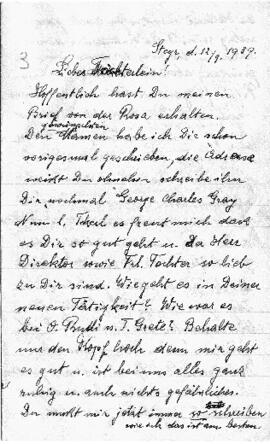 3
Steyr, d. 12/9. 1939.
Liebes Töchterlein!
Hoffentlich hast Du meinen
Brief von der Rosa erhalten.
gewünschten
Den Namen habe ich Dir schon
voriges mal geschrieben, die Adresse
weißt Du ohnehin schreibe ihn
Dir nochmal George Charles Gray
Nun l. es freut mich dass
es Dir so gut geht u. Da Herr
Direktor sowie Frl. Tochter so lieb
zu Dir sind. Wie geht es in Deiner
neuen Tätigkeit? Wie war es
bei O. Rudi u. T. Grete? Behalte
nur den Kopf hoch denn mir geht
es gut u. ist bei uns alles ganz
ruhig u. auch nichts gefährliches.
Du mußt mir jetzt immer so schreiben
wie ich das ist am besten.